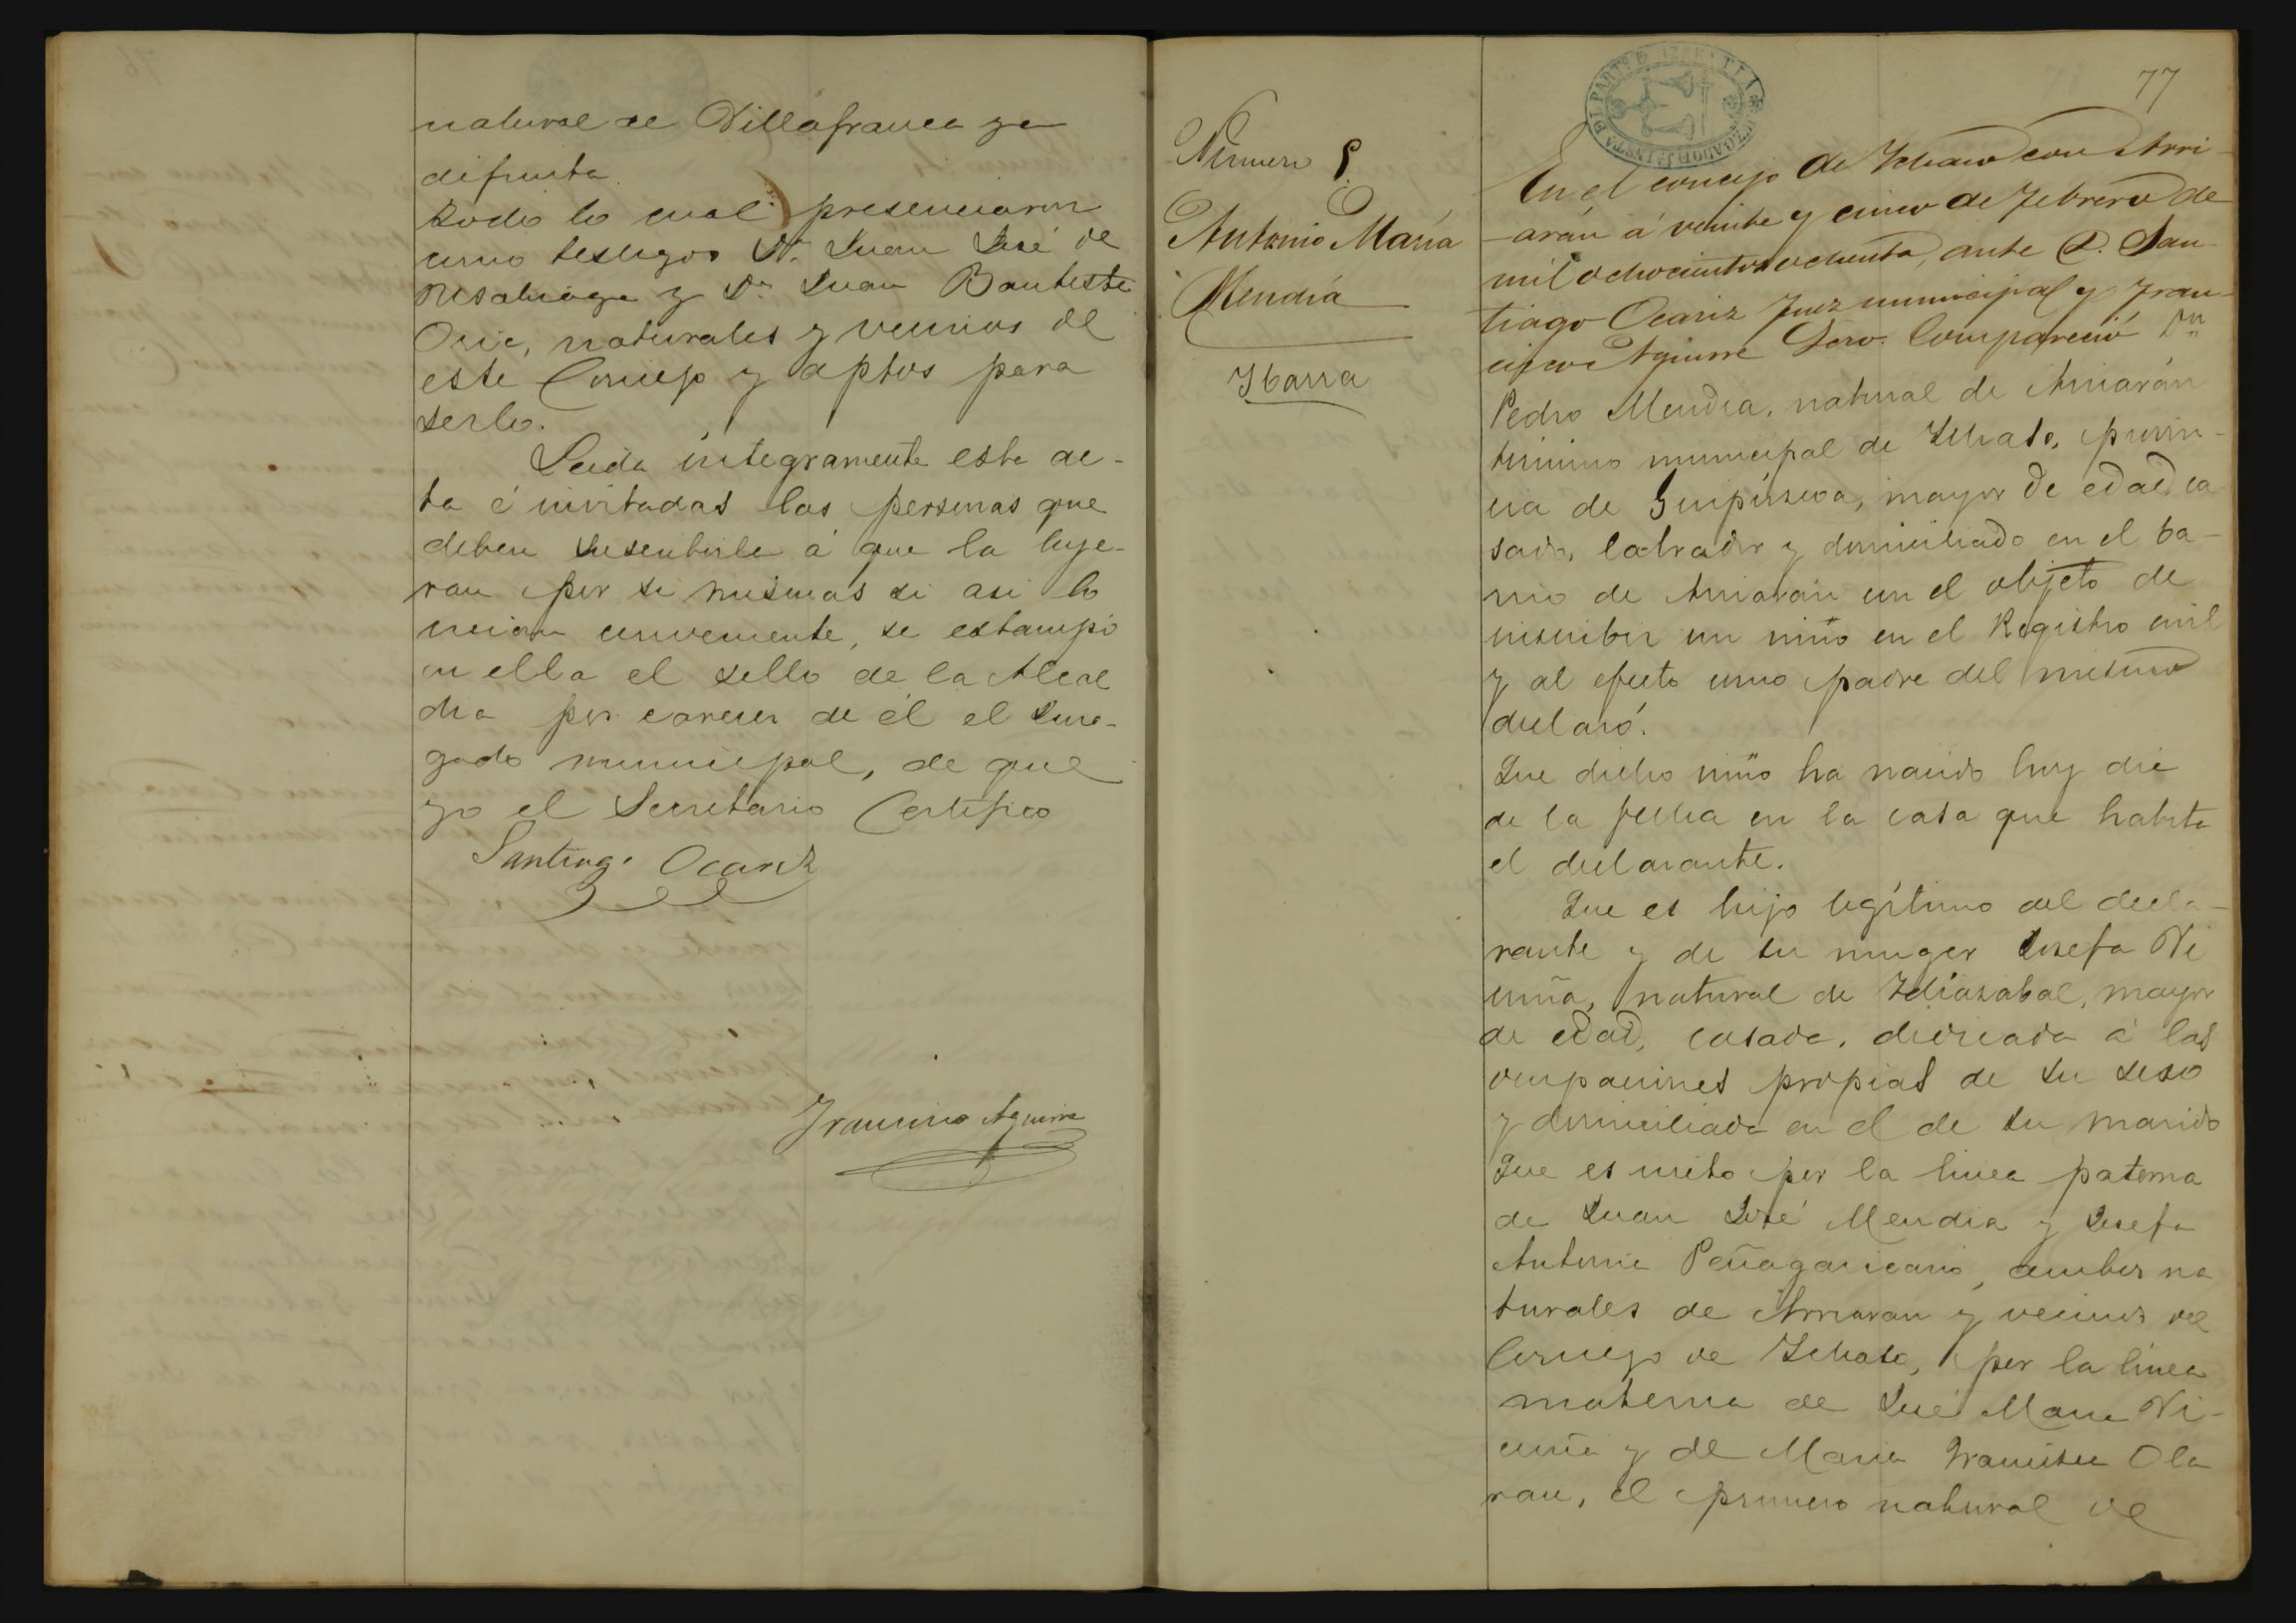 natural de Villafranca ya
difunta.
Todo lo cual presenciaron
como testigos Dn. Juan José de
y Dn. Juan Bautista
Oria, naturales y vecinos de
este Concejo y aptos para
serlo.
Leida integramente esta ac-
ta é invitadas las personas que
deben suscribirla á que la leye-
ran por si mismas si asi lo
creian conveniente, se estampó
en ella el sello de la Alcal
dia por carecer de él el Juz-
gado municipal, de que
yo el Secretario Certifico
Santiago Ocariz
Francisco Aguirre
77
JUZGADO DE 1ª INSTª DEL PARTº DE AZPEITIA
Número 8
Antonio María
Mendía
Ybarra
En el concejo de Ychaso con Arri-
-arán á veinte y cinco de Febrero de
mil ochocientos ochenta, ante D. San-
tiago Ocariz Juez municipal y Fran-
cisco Aguirre Secro. Compareció Dn
Pedro Mendia, natural de Arriarán
término municipal de Ychaso, provin-
cia de Guipúzcoa, mayor de edad, ca-
sado, labrador y domiciliado en el ba-
rrio de Arriarán con el objeto de
inscribir un niño en el Registro civil
y al efecto como padre del mismo
declaró.
Que dicho niño ha nacido hoy dia
de la fecha en la casa que habita
el declarante.
Que es hijo legítimo del decla-
rante y de su muger Josefa Vi
cuña, natural de Ydiazabal, mayor
de edad, casada, dedicada á las
ocupaciones propias de su sexo
y domiciliada en el de su marido
Que es nieto por la linea paterna
de Juan José Mendia y Josefa
Antonia Peñagaricano, ambos na
turales de Arriaran y vecinos del
Concejo de Ychaso, por la línea
materna de José Maria Vi-
cuña y de Maria Francisca Ola
ran, el primero natural de